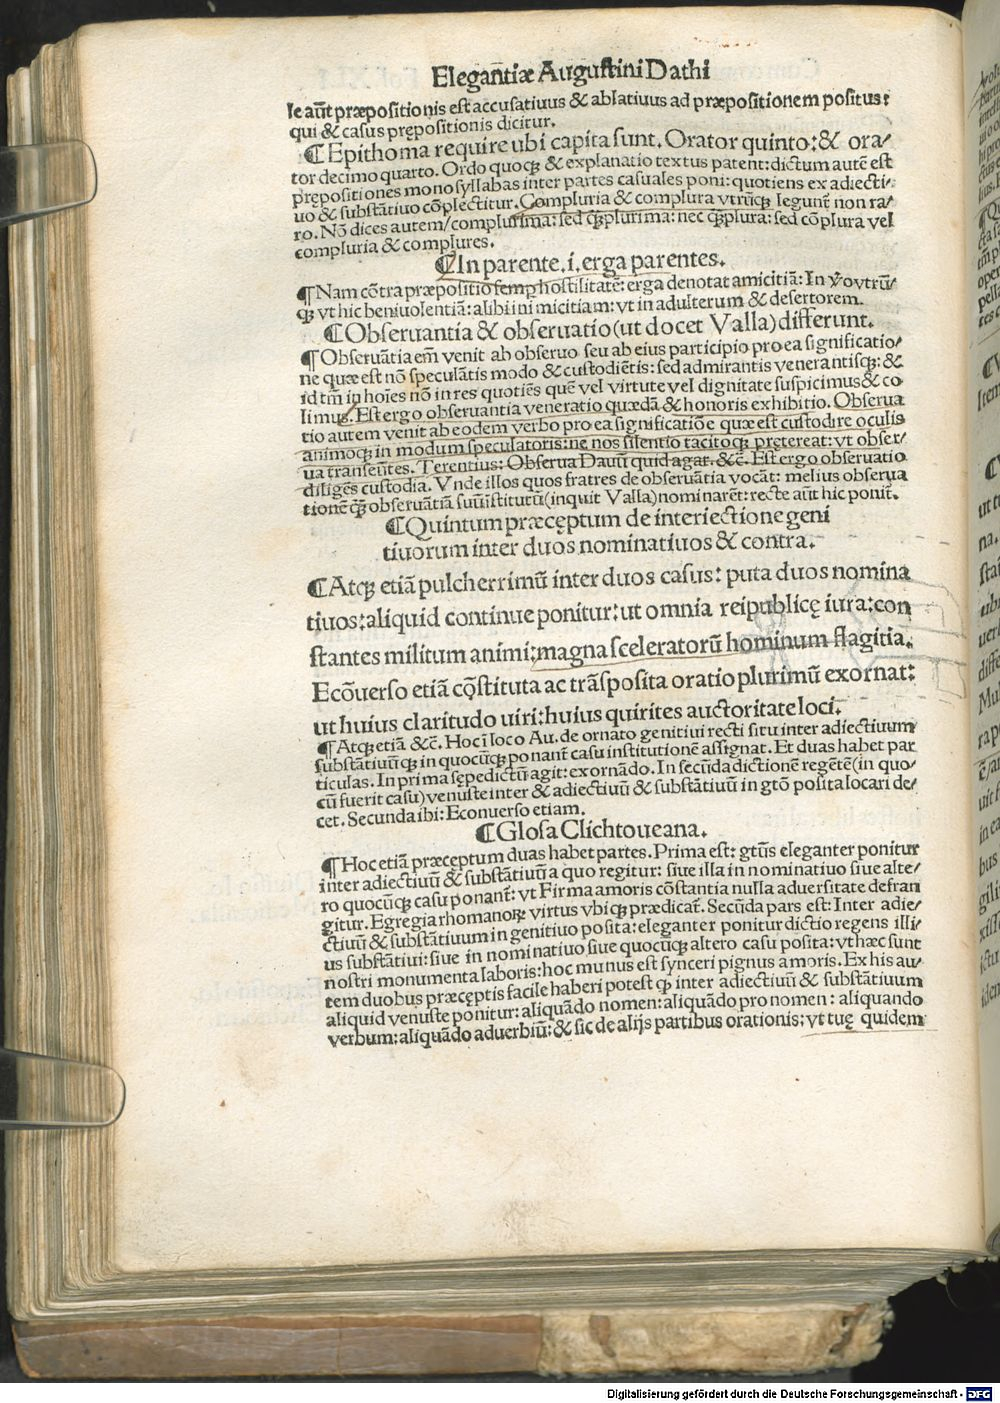 Elegantiæ Augustini Dathi
le aūt præpositionis est accusatiuus & ablatiuus ad præpositionem positus:
qui & casus prępositionis dicitur.
⸿ Epithoma require ubi capita sunt. Orator quinto: & ora/
tor decimo quarto. Ordo quoqꝫ & explanatio textus patent: dictum autē est
prępositiones monosyllabas inter partes casuales poni: quotiens ex adiecti/
uo & substātiuo cōplectitur. Compluria & complura vtrūqꝫ legunt᷑ non ra/
ro. Nō dices autem/complurima: sed q̄ꝫplurima: nec q̄ꝫplura: sed cōplura vel
compluria & complures.
⸿ In parente .i. erga parentes.
¶ Nam cōtra præpositio semp hostilitatē: erga denotat amicitiā: In ṽo vtrū/
qꝫ vt hic beniuolentiā: alibi inimicitiam: vt in adulterum & desertorem.
⸿ Obseruantia & obseruatio (ut docet Valla) differunt.
¶ Obseruātia em̄ venit ab obseruo seu ab eius participio pro ea significatio/
ne quæ est nō speculātis modo & custodiētis: sed admirantis venerantisqꝫ: &
id tm̄ in hoīes nō in res quotiēs quē vel virtute vel dignitate suspicimus & co
limus. Est ergo obseruantia veneratio quædā & honoris exhibitio. Obserua
tio autem venit ab eodem verbo pro ea significatiōe quæ est custodire oculis
animoqꝫ in modum speculatoris: ne nos silentio tacitoqꝫ prętereat: vt obser/
ua transeūtes. Terentius: Obserua Dauū quid agat. &c̄. Est ergo obseruatio
diligēs custodia. Vnde illos quos fratres de obseruātia vocāt: melius obserua
tionē q̄ꝫ obseruātiā suū institutū (inquit Valla) nominarēt: recte aūt hic ponit᷑.
⸿ Quintum præcęptum de interiectione geni
tiuorum inter duos nominatiuos & contra.
⸿ Atqꝫ etiā pulcherrimū inter duos casus: puta duos nomina
tiuos: aliquid continue ponitur: ut omnia reipublicę iura: con
stantes militum animi: magna sceleratorū hominum flagitia.
Ecōuerso etiā cōstituta ac trāsposita oratio plurimū exornat:
ut huius claritudo uiri: huius quirites auctoritate loci.
¶ Atqꝫ etiā &c̄. Hoc ī loco Au. de ornato genitiui recti situ inter adiectiuum
substātiuūqꝫ in quocūqꝫ ponant᷑ casu institutionē assignat. Et duas habet par
ticulas. In prima sępedictū agit: exornādo. In secūda dictionē regētē (in quo/
cū fuerit casu) venuste inter & adiectiuū & substātiuū in gtō posita locari de/
cet. Secunda ibi: Econuerso etiam.
⸿ Glosa Clichtoueana.
¶ Hoc etiā præcęptum duas habet partes. Prima est: gtūs eleganter ponitur
inter adiectiuū & substātiuū a quo regitur: siue illa in nominatiuo siue alte/
ro quocūqꝫ casu ponant᷑: vt Firma amoris cōstantia nulla aduersitate defran
gitur. Egregia rhomanoꝝ virtus vbiqꝫ prædicat᷑. Secūda pars est: Inter adie/
ctiuū & substātiuum in genitiuo posita: eleganter ponitur dictio regens illi/
us substātiui: siue in nominatiuo siue quocūqꝫ altero casu posita: vt hæc sunt
nostri monumenta laboris: hoc munus est synceri pignus amoris. Ex his au/
tem duobus præcęptis facile haberi potest qꝫ inter adiectiuū & substātiuum
aliquid venuste ponitur: aliquādo nomen: aliquādo pronomen: aliquando
verbum: aliquādo aduerbiū: & sic de alijs partibus orationis: vt tuę quidem
Digitalisierung gefördert durch die Deutsche Forschungsgemeinschaft - DFG